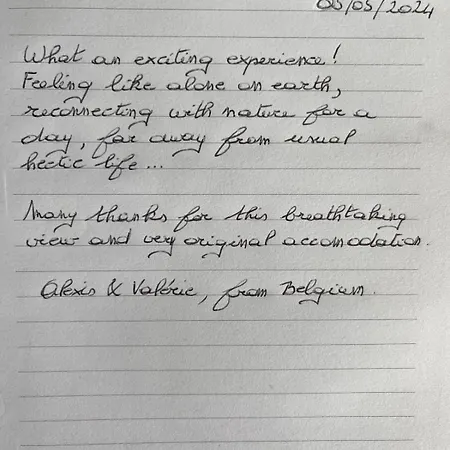 /05/2024
What an exciting experience!
Feeling like alone on earth,
reconnecting with nature for a
day, far away from usual
hectic life...
Many thanks for this breathtaking
view and very original accomodation.
Alexis & Valérie, from Belgium.